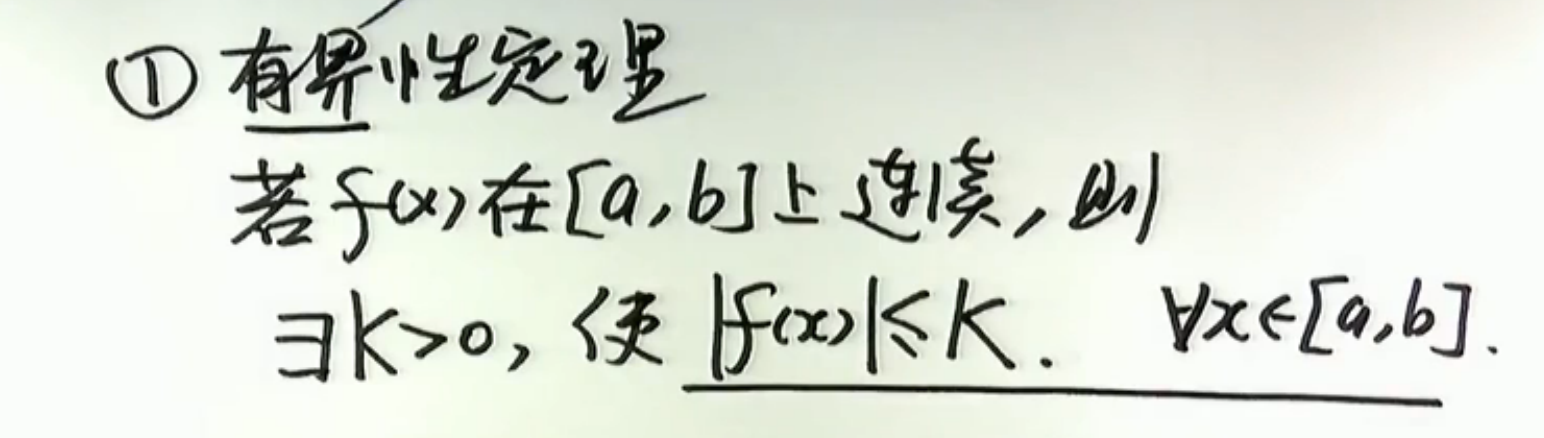 ① 有界性定理
若f(x)在[a,b]上连续,则
∃K>0,使 |f(x)|≤K. ∀x∈[a,b].